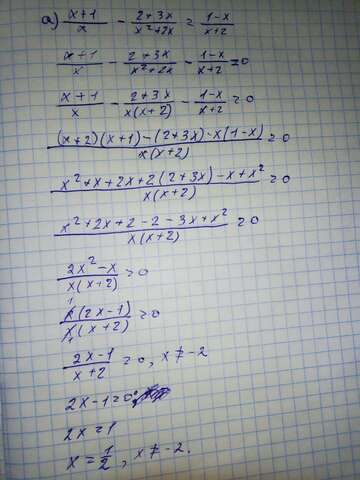 а) (x+1)/x - (2+3x)/(x²+2x) = (1-x)/(x+2)
(x+1)/x - (2+3x)/(x²+2x) - (1-x)/(x+2) = 0
(x+1)/x - (2+3x)/(x(x+2)) - (1-x)/(x+2) = 0
((x+2)(x+1)-(2+3x)-x(1-x))/(x(x+2)) = 0
(x²+x+2x+2(2+3x)-x+x²)/(x(x+2)) = 0
(x²+2x+2-2-3x+x²)/(x(x+2)) = 0
(2x²-x)/(x(x+2)) = 0
(x(2x-1))/(x(x+2)) = 0
(2x-1)/(x+2) = 0, x≠-2
2x-1=0
2x=1
x=1/2, x≠-2.